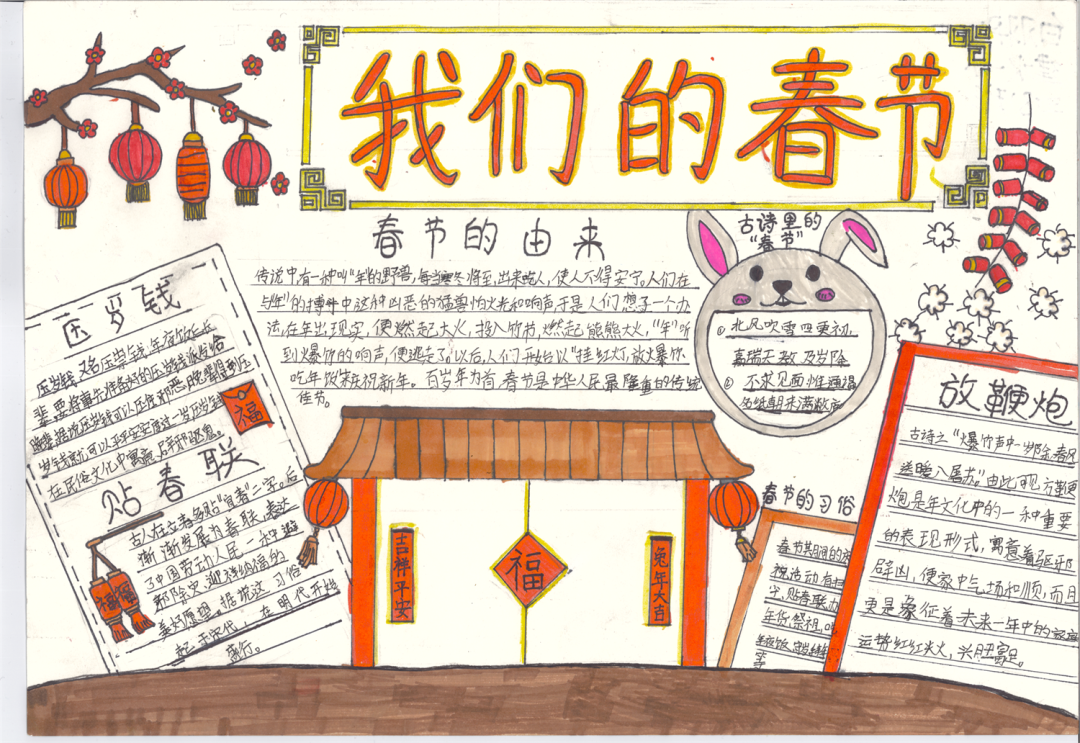 我们的春节
春节的由来
传说中有一种叫"年"的野兽,每当寒冬将至,出来吃人,使人不得安宁。人们在
与"年"的搏斗中这种凶恶的猛兽怕火光和响声于是人们想了一个办
法,在年出现实,便燃起大火,投入竹节,燃起熊熊大火,"年"听
到爆竹的响声,便逃走了,以后人们开始以"挂红灯,放爆竹、
吃年饭"来庆祝新年。百岁年为首,春节是中华人民最隆重的传统
佳节。
压岁钱
压岁钱,又名压祟钱,年夜饭后长
辈要将事先准备好的压岁钱派发给
晚辈,据说压岁钱可以压住邪恶,晚辈得到压
岁钱就可以平平安安度过一岁压岁钱
在民俗文化中寓意辟邪驱鬼。
福
贴春联
古人在立春多贴"宜春"二字。后
渐渐发展为春联,表达
了中国劳动人民一种避
邪除灾、迎祥纳福的
美好愿望。据说这习俗
起于宋代,在明代开始
盛行。
福 福
古诗里的
"春节"
① 北风吹雪四更初,
嘉瑞天教及岁除
② 不求见面惟通谒
名纸朝来满敝庐
吉祥平安
福
兔年大吉
春节的习俗
春节其间的
祝活动有
字,贴春联办
年货祭祖,
年夜饭,
等
放鞭炮
古诗之"爆竹声中一岁除,春风
送暖入屠苏。"由此可见,方鞭
炮是年文化中的一种重要
的表现形式,寓意着驱邪
辟凶,使家中气场和顺,而且
更是象征着未来一年中的
运势红红火火,兴旺富足。